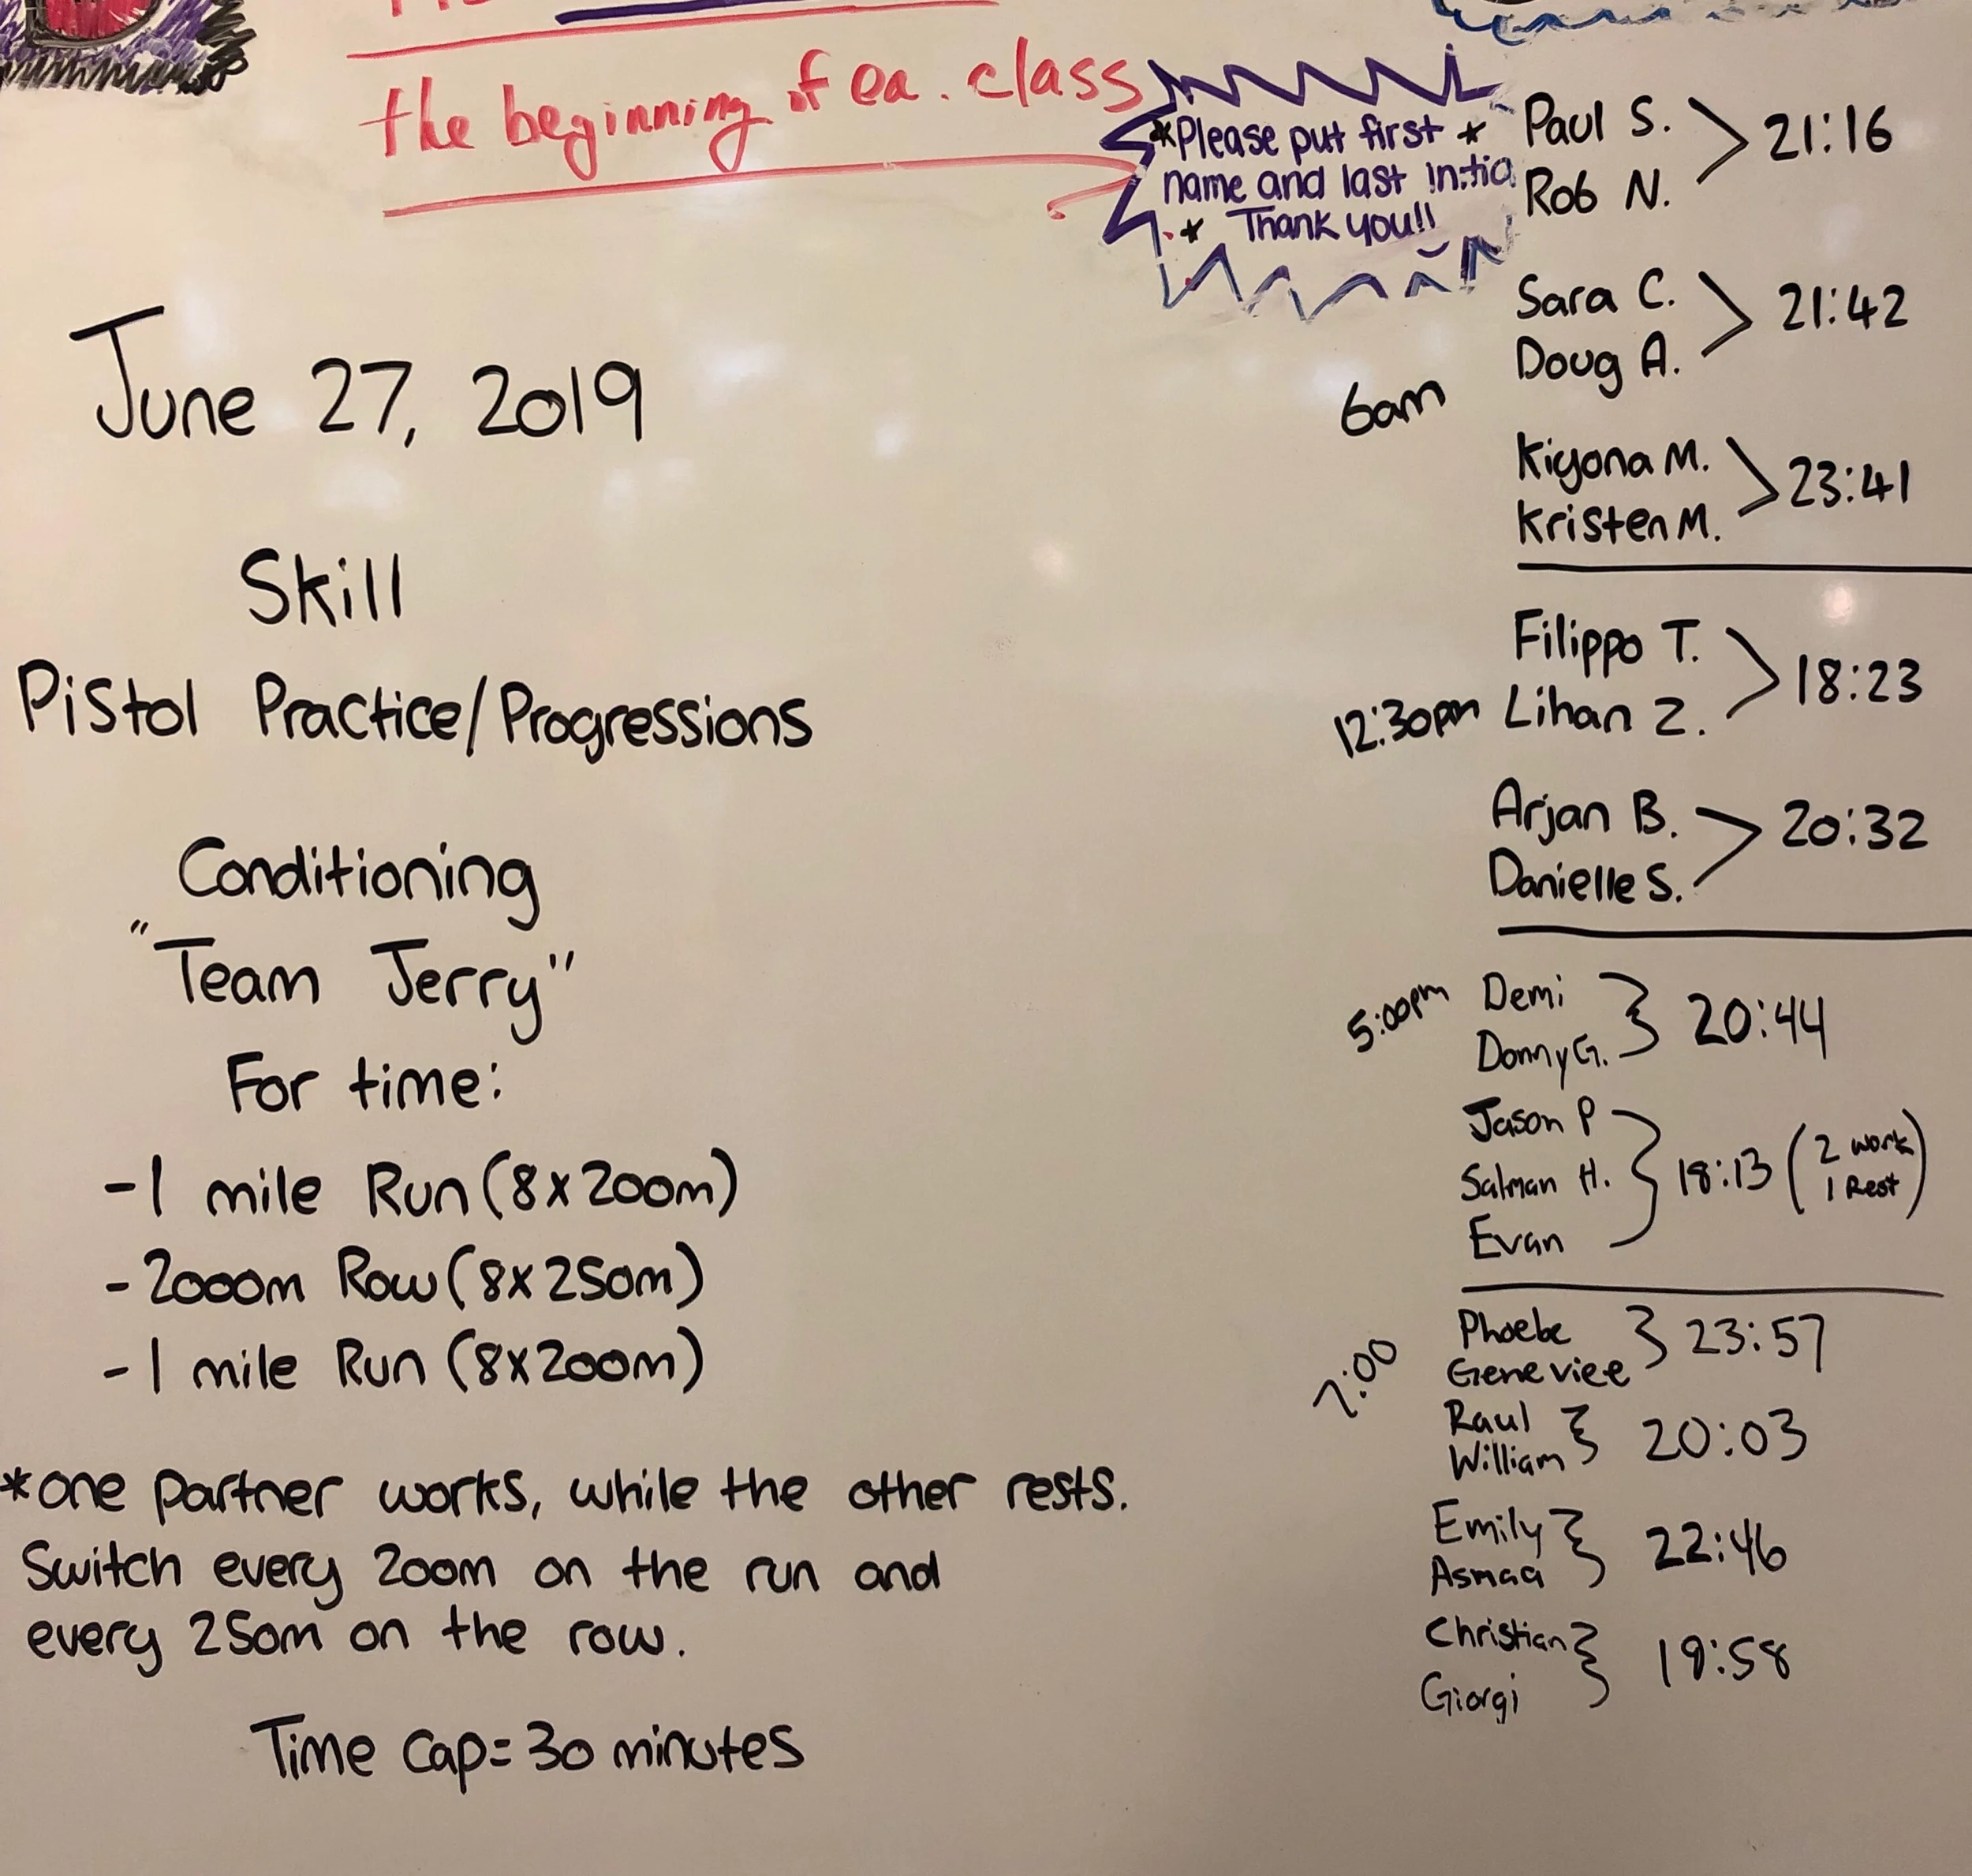 the beginning of ea. class
*Please put first *
name and last initia
* Thank you!!
June 27, 2019
Skill
Pistol Practice/Progressions
Conditioning
"Team Jerry"
For time:
-1 mile Run (8x200m)
-2000m Row (8x250m)
-1 mile Run (8x200m)
*one partner works, while the other rests.
Switch every 200m on the run and
every 250m on the row.
Time Cap=30 minutes
6am
Paul S.
Rob N.
21:16
Sara C.
Doug A.
21:42
Kiyona M.
Kristen M.
23:41
12:30pm
Filippo T.
Lihan Z.
18:23
Arjan B.
Danielle S.
20:32
5:00pm
Demi
Donny G.
20:44
Jason P
Salman H.
Evan
18:13 (2 work
1 Rest)
7:00
Phoebe
Geneviee
23:57
Raul
William
20:03
Emily
Asmaa
22:46
Christian
Giorgi
19:58